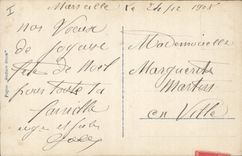 Marseille le 24/12 1905
nos Voeux
de joyeuse
fete de Noel
pour toute la
famille
Mademoiselle
Marguerite
Martin
en Ville